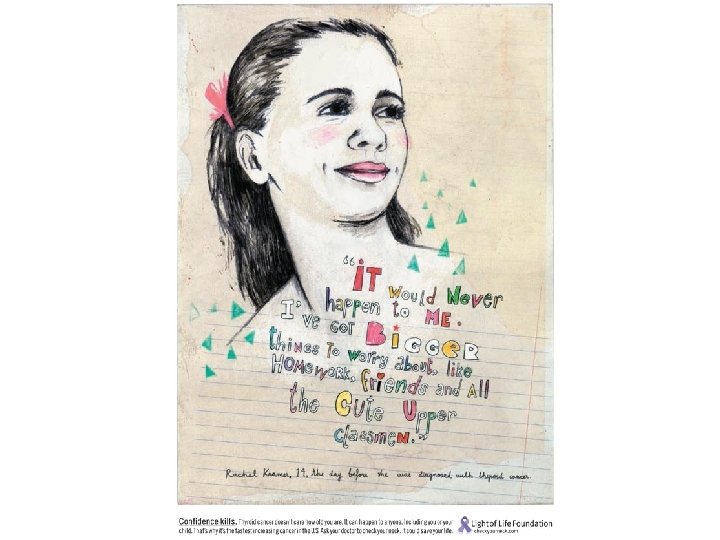 “IT would Never
happen to ME.
I've got BIGGER
things To worry about, like
HOMEwork, friends and All
the Cute Upper
classmen.”
Rachel Kramer, 14, the day before she was diagnosed with thyroid cancer.
Confidence kills. Thyroid cancer doesn't care how old you are. It can happen to anyone, including you or your
child. That's why it's the fastest increasing cancer in the U.S. Ask your doctor to check your neck. It could save your life.
Light of Life Foundation
checkyourneck.com